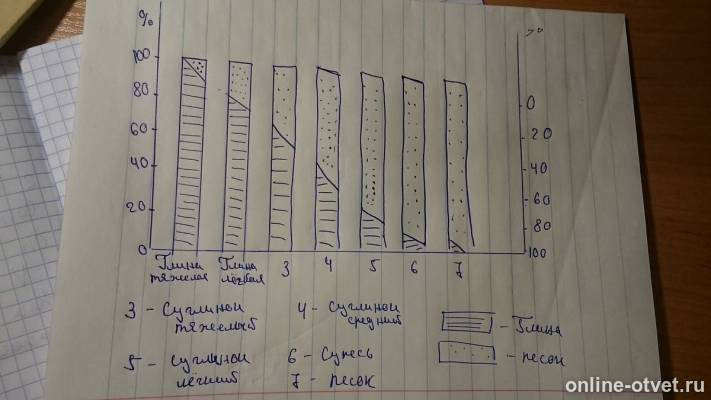 %
%
100
80
60
40
20
0
0
20
40
60
80
100
Глина тяжелая
Глина лёгкая
3
4
5
6
7
3 - Суглинок тяжелый
4 - Суглинок средний
- Глина
5 - Суглинок лёгкий
6 - Супесь
- песок
7 - песок
online-otvet.ru